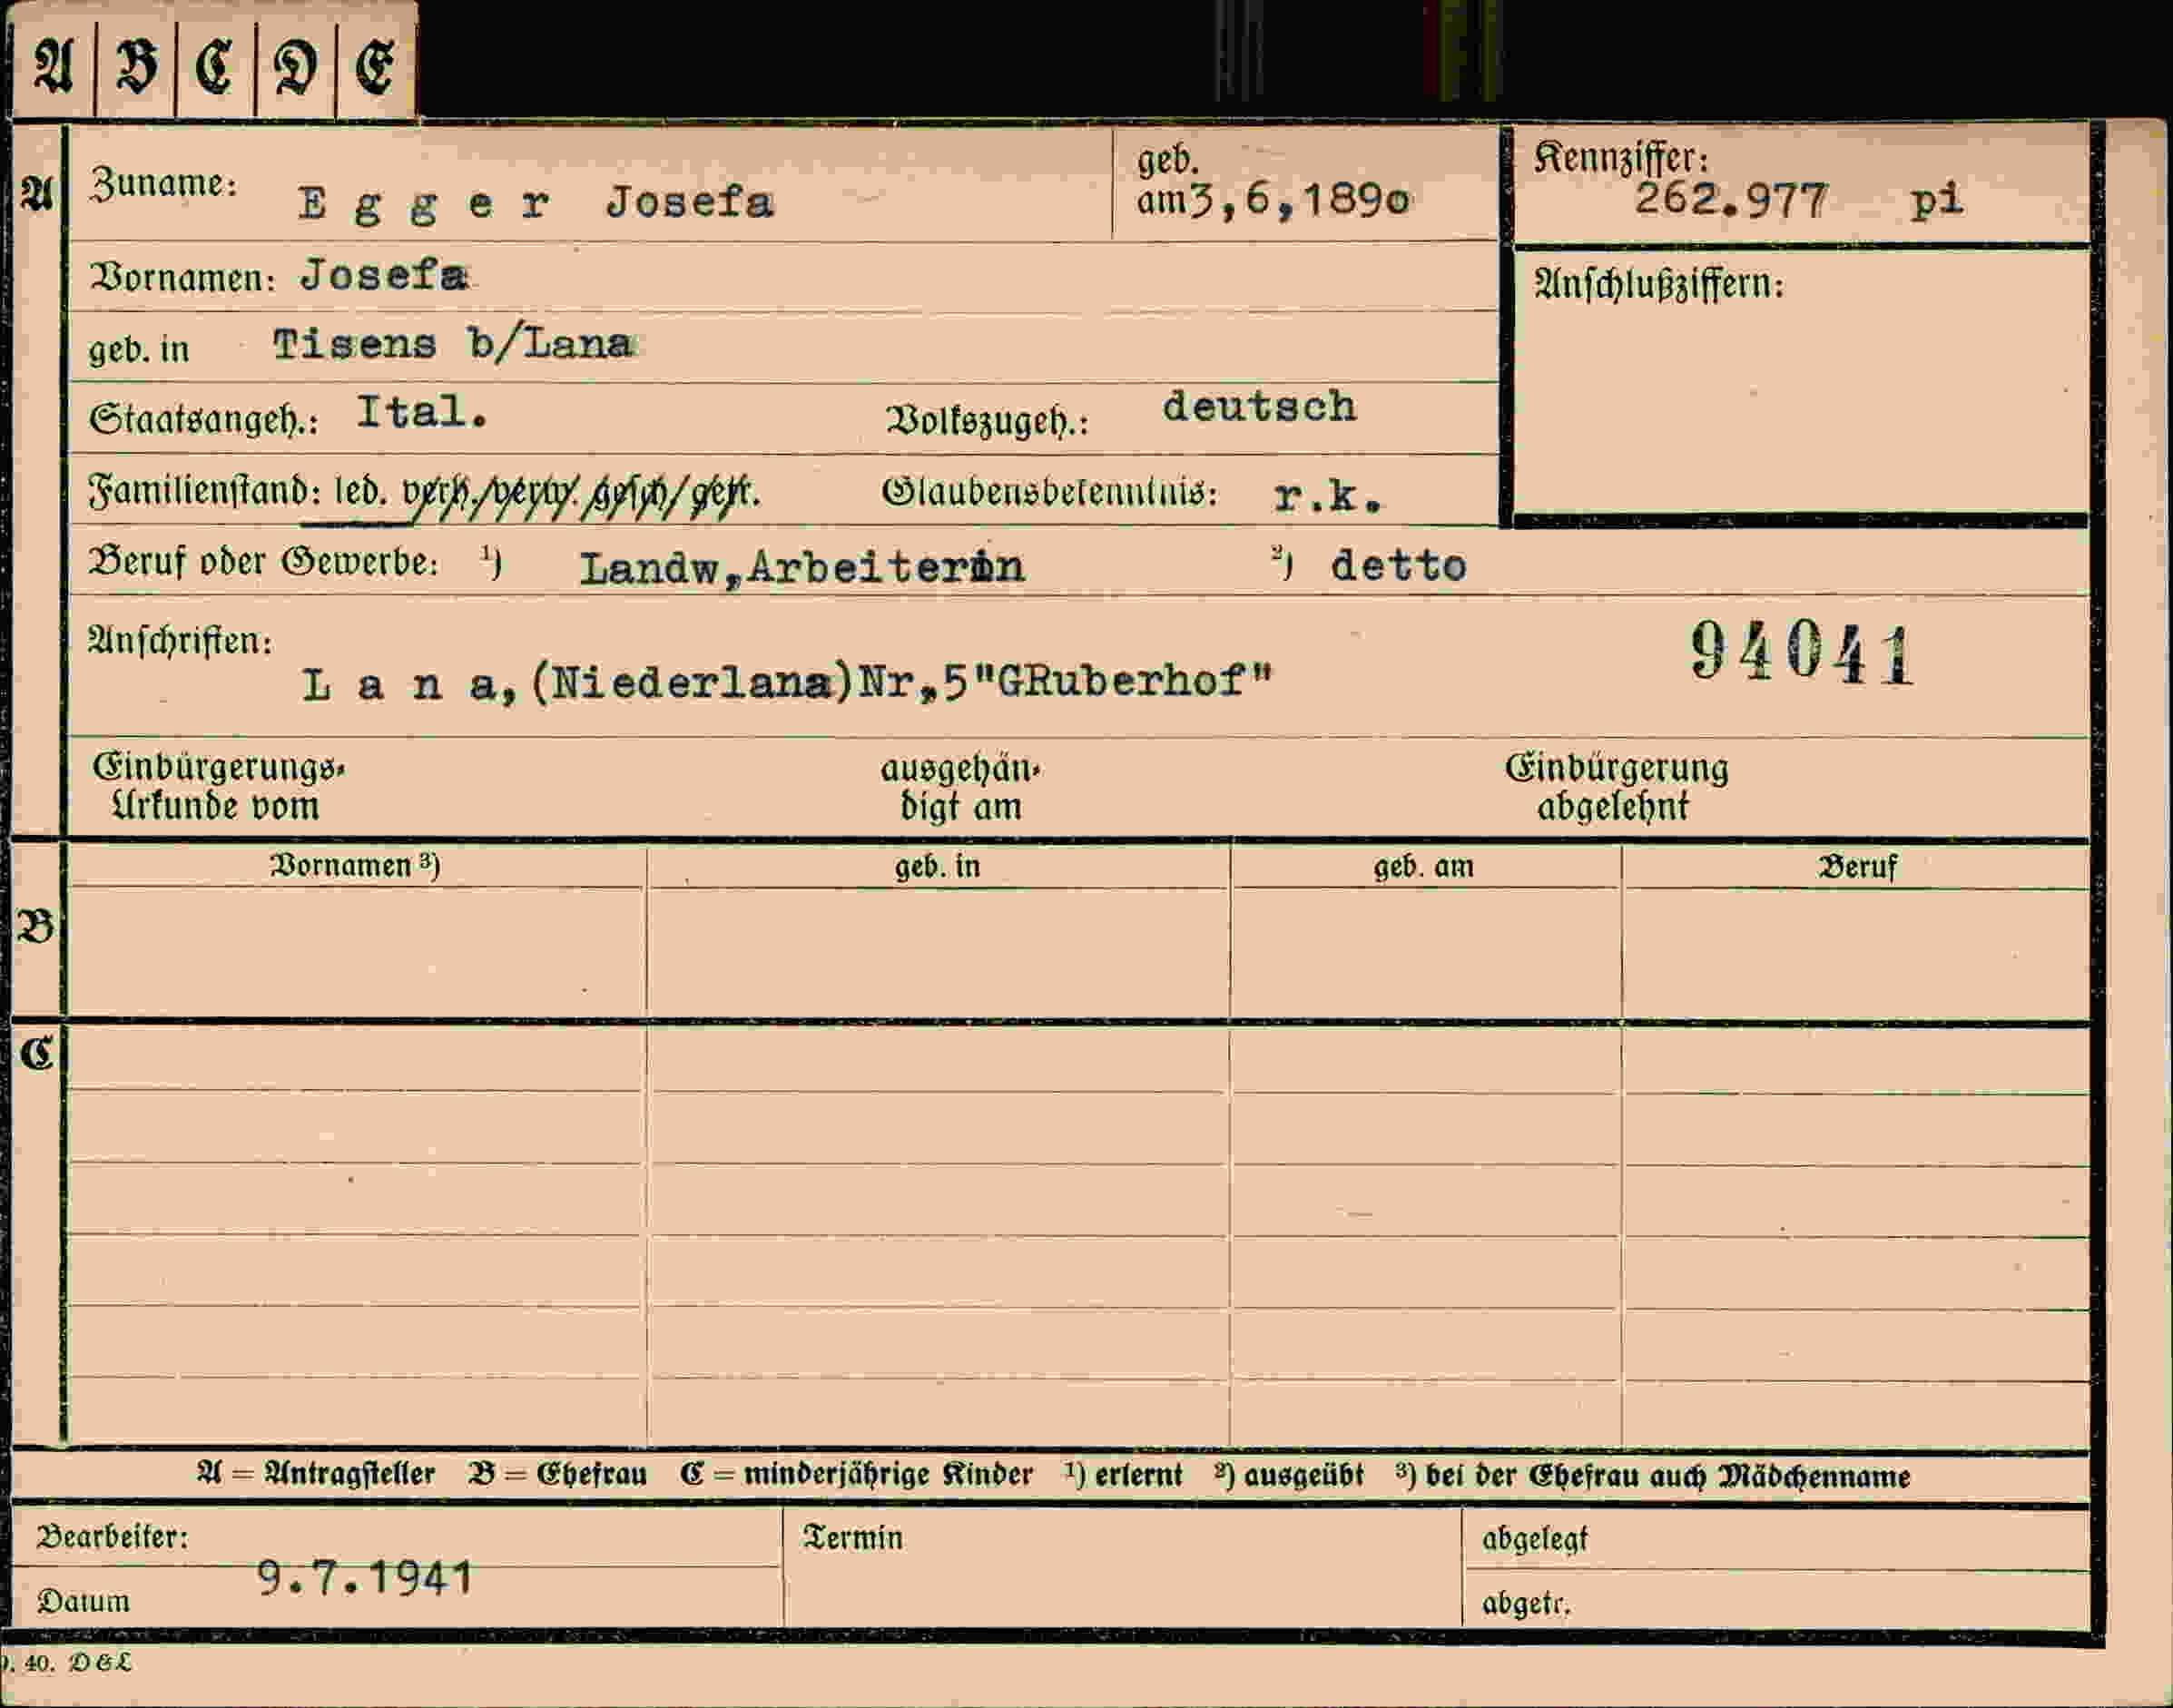 A B C D E
A Zuname: E g g e r Josefa geb. am 3,6,1890 Kennziffer: 262.977 pi
Vornamen: Josefa Anschlußziffern:
geb. in Tisens b/Lana
Staatsangeh.: Ital. Volkszugeh.: deutsch
Familienstand: led. verh./verw. gesch/getr. Glaubensbekenntnis: r.k.
Beruf oder Gewerbe: 1) Landw,Arbeiterin 2) detto
Anschriften: 94041
L a n a,(Niederlana)Nr,5"GRuberhof"
Einbürgerungs- ausgehän- Einbürgerung
Urkunde vom digt am abgelehnt
Vornamen 3) geb. in geb. am Beruf
B
C
A = Antragsteller B = Ehefrau C = minderjährige Kinder 1) erlernt 2) ausgeübt 3) bei der Ehefrau auch Mädchenname
Bearbeiter: Termin abgelegt
9.7.1941
Datum abgetr.
40. D&L